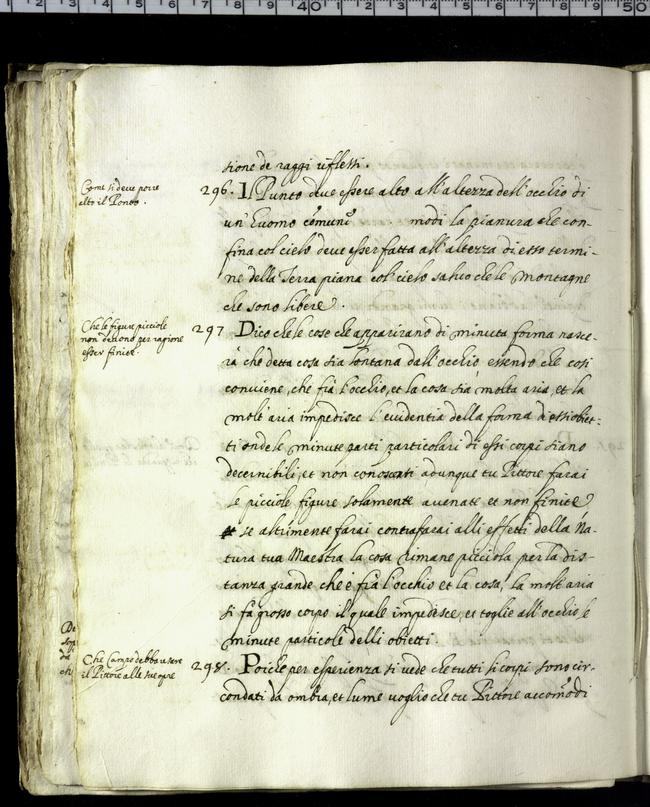 sione de raggi riflessi.
Come si deve porre
alto il Ponto.
296. Il Punto deve essere alto all'altezza dell'occhio di
un' huomo comune modi la pianura che con-
fina col cielo deve esser fatta all'altezza di esso termi-
ne della Terra piana col' cielo salvo che le montagne
che sono libere.
Che le figure picciole
non devono per ragione
esser finite.
297 Dico che le cose che apparirano di minuta forma nasce-
rà che detta cosa sia lontana dall'occhio essendo che cosi
conviene, che frà l'occhio, et la cosa sia molta aria, et la
molt'aria impedisce l'evidentia della forma d'essi obiet-
ti onde le minute parti particolari di essi corpi siano
decernibili, et non conoscenti adunque tu Pittore farai
le picciole figure solamente avenate et non finite
se altrimente farai contrafarai alli effetti della Na-
tura tua Maestra la cosa rimane picciola per la dis-
tanza grande che è frà l'occhio et la cosa, la molt'aria
si fa grosso corpo il quale impedisce, et toglie all'occhio le
minute particole delli obietti.
Che Campo debba usare
il Pittore alle sue opre
298. Poiche per esperienza si vede che tutti li corpi sono cir-
condati da ombra, et lume voglio che tu Pittore accomodi